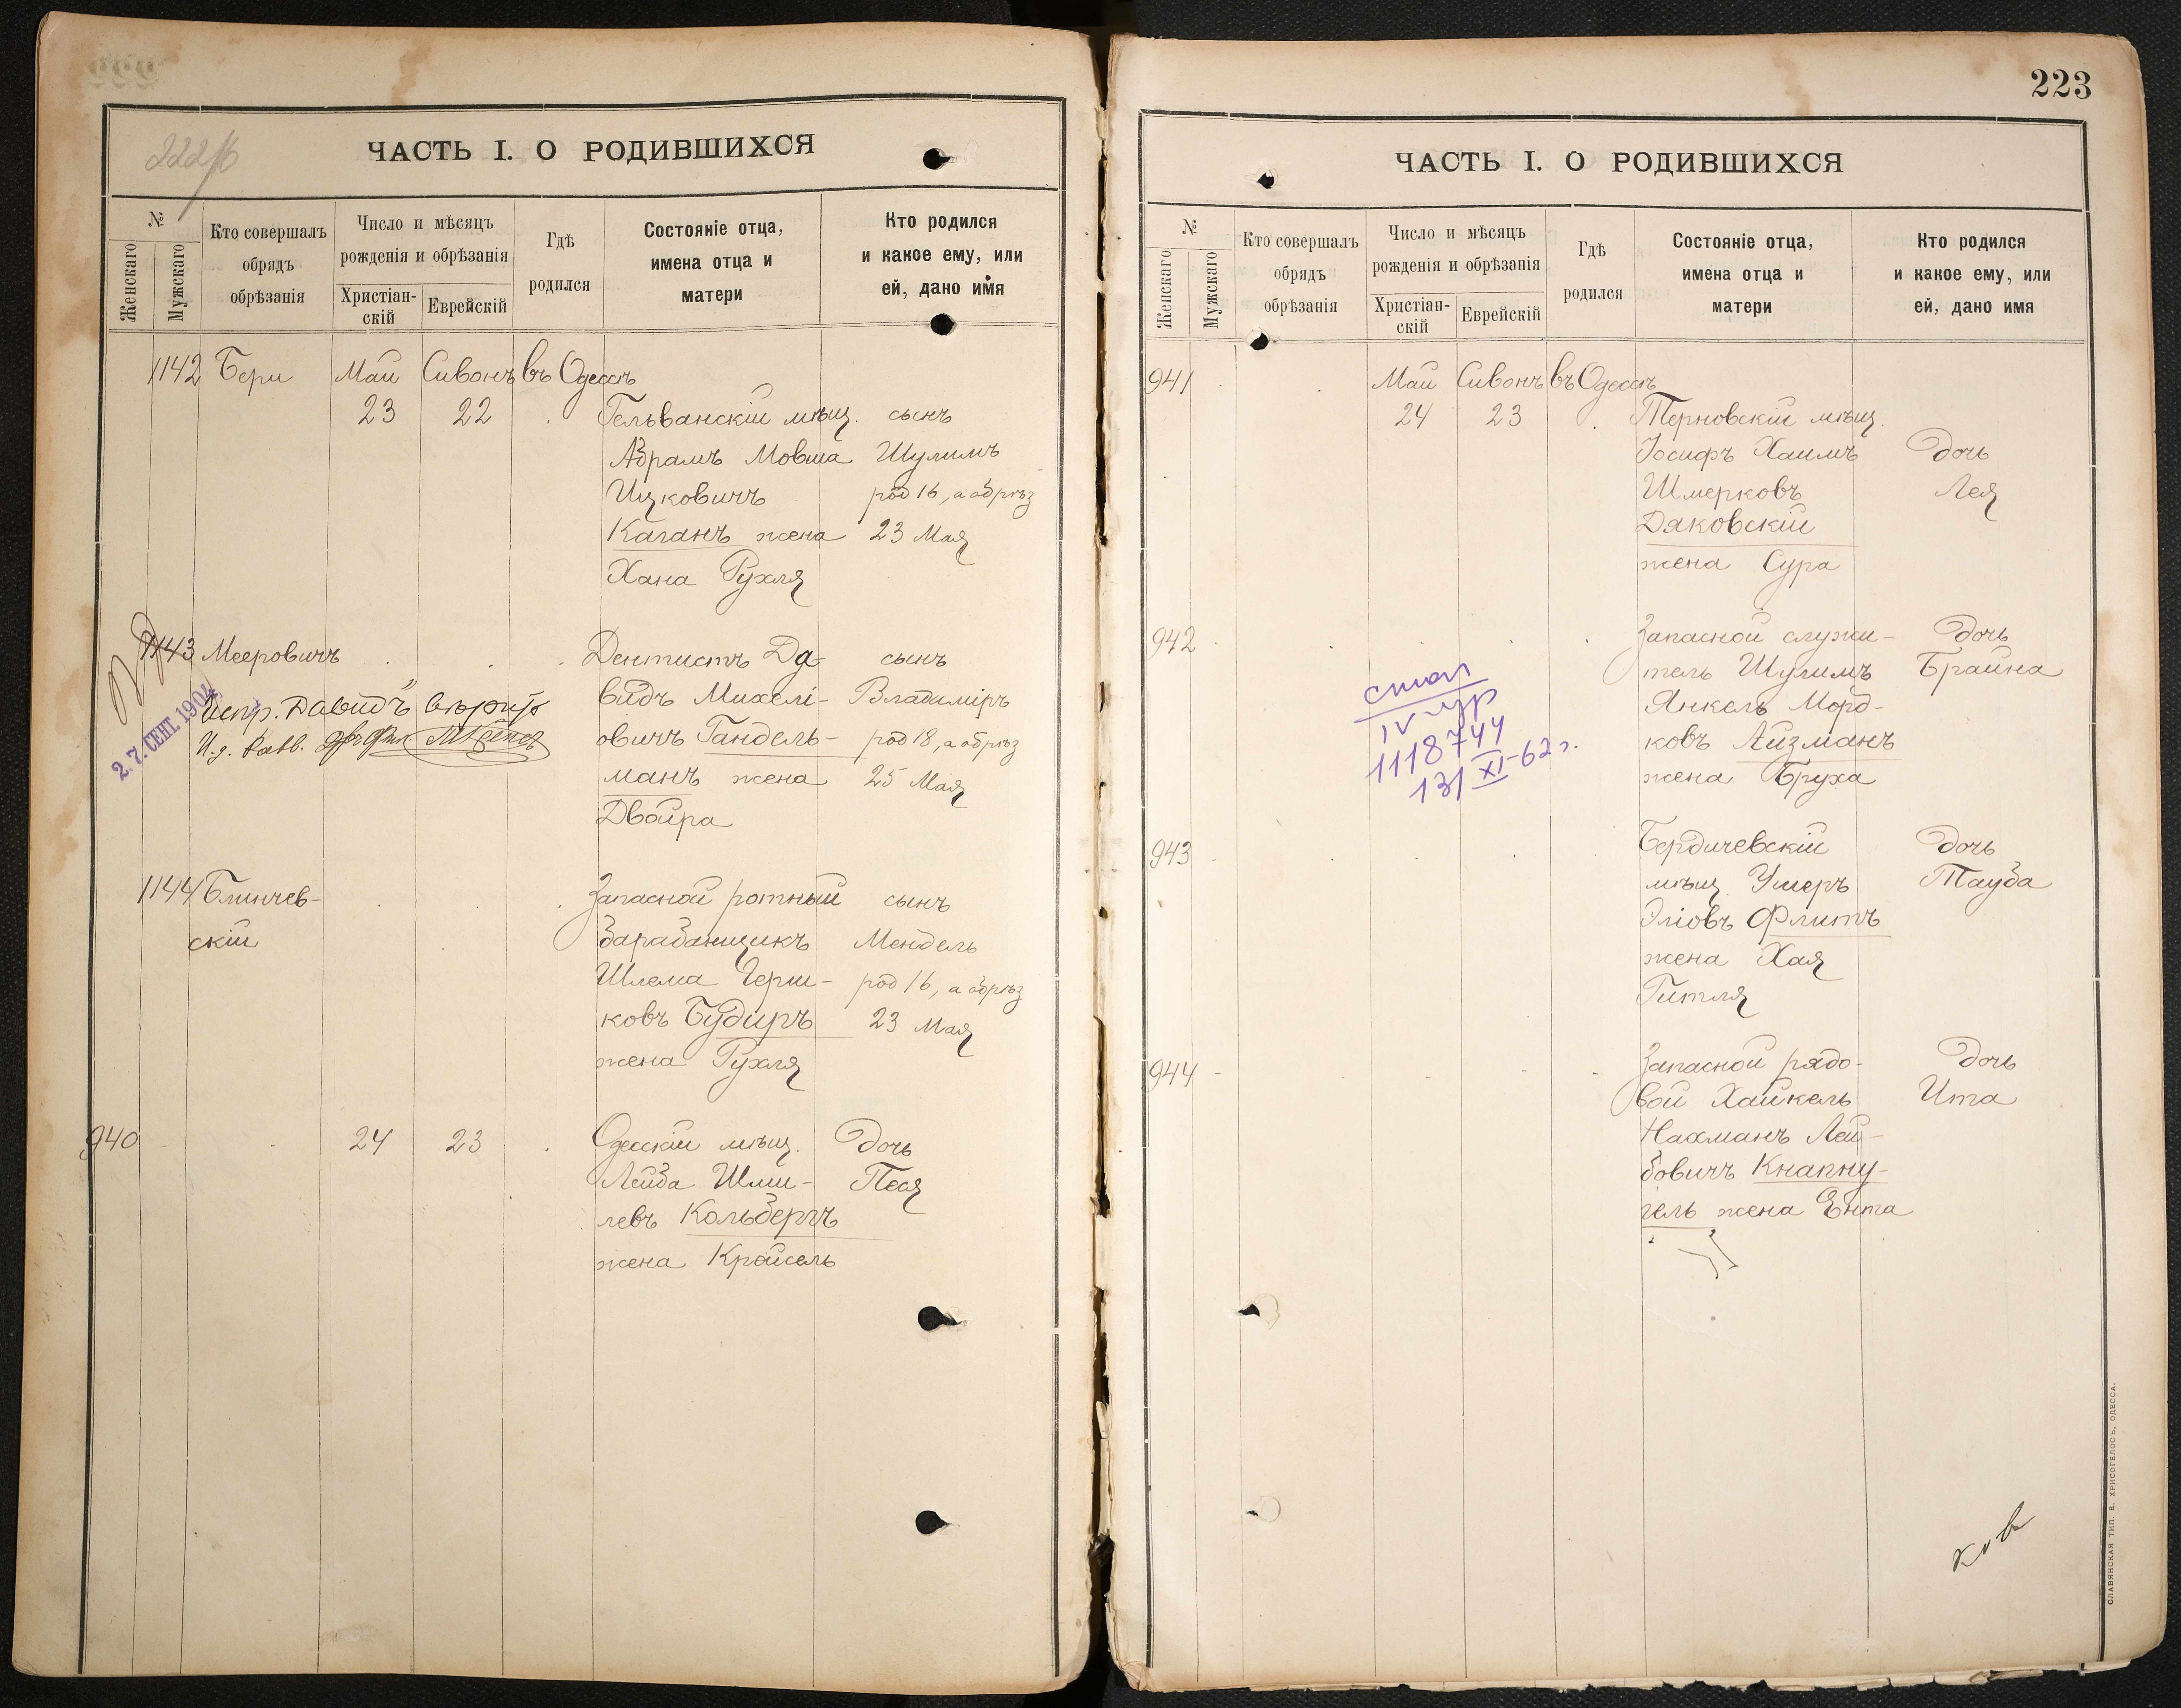 222/б
ЧАСТЬ I. О РОДИВШИХСЯ
№
Женскаго
Мужскаго
Кто совершалъ
обрядъ
обрѣзанія
Число и мѣсяцъ
рожденія и обрѣзанія
Христіан-
скій
Еврейскій
Гдѣ
родился
Состояніе отца,
имена отца и
матери
Кто родился
и какое ему, или
ей, дано имя
1142 Бери Май Сивонъ въ Одессѣ
23 22 Гельванскій мѣщ. сынъ
Абрамъ Мовша Шулимъ
Ицковичъ род 16, а обрѣз
Каганъ жена 23 Мая
Хана Рухля
1143 Мееровичъ Дентистъ Да- сынъ
видъ Михелі- Владиміръ
овичъ Гандель- род 18, а обрѣз
манъ жена 25 Мая
Двойра
Испр. "Давидъ" вѣрно
И.д. Равв.
27. СЕНТ. 1904
1144 Блинчев- Запасной ротный сынъ
скій барабанщикъ Мендель
Шлема Герш- род 16, а обрѣз
ковъ Будиръ 23 Мая
жена Рухля
940 24 23 Одесскій мѣщ. Дочь
Лейба Шми- Песя
левъ Кольбергъ
жена Крейсель
223
ЧАСТЬ I. О РОДИВШИХСЯ
№
Женскаго
Мужскаго
Кто совершалъ
обрядъ
обрѣзанія
Число и мѣсяцъ
рожденія и обрѣзанія
Христіан-
скій
Еврейскій
Гдѣ
родился
Состояніе отца,
имена отца и
матери
Кто родился
и какое ему, или
ей, дано имя
941 Май Сивонъ въ Одессѣ
24 23 Терновскій мѣщ.
Іосифъ Хаимъ Дочь
Шмерковъ Лея
Дяковскій
жена Сура
942 Запасной служи- Дочь
тель Шулимъ Брайна
Янкель Морд-
ковъ Айзманъ
жена Бруха
IV
1118744
13/XI-62 г.
943 Бердичевскій Дочь
мѣщ. Умеръ Тауба
Эліовъ Флитъ
жена Хая
Гитля
944 Запасной рядо- Дочь
вой Хайкель Ита
Нахманъ Лей-
бовичъ Кнапну-
гель жена Ента
СЛАВЯНСКАЯ ТИП. Е. ХРИСОГЕЛОСЪ, ОДЕССА.